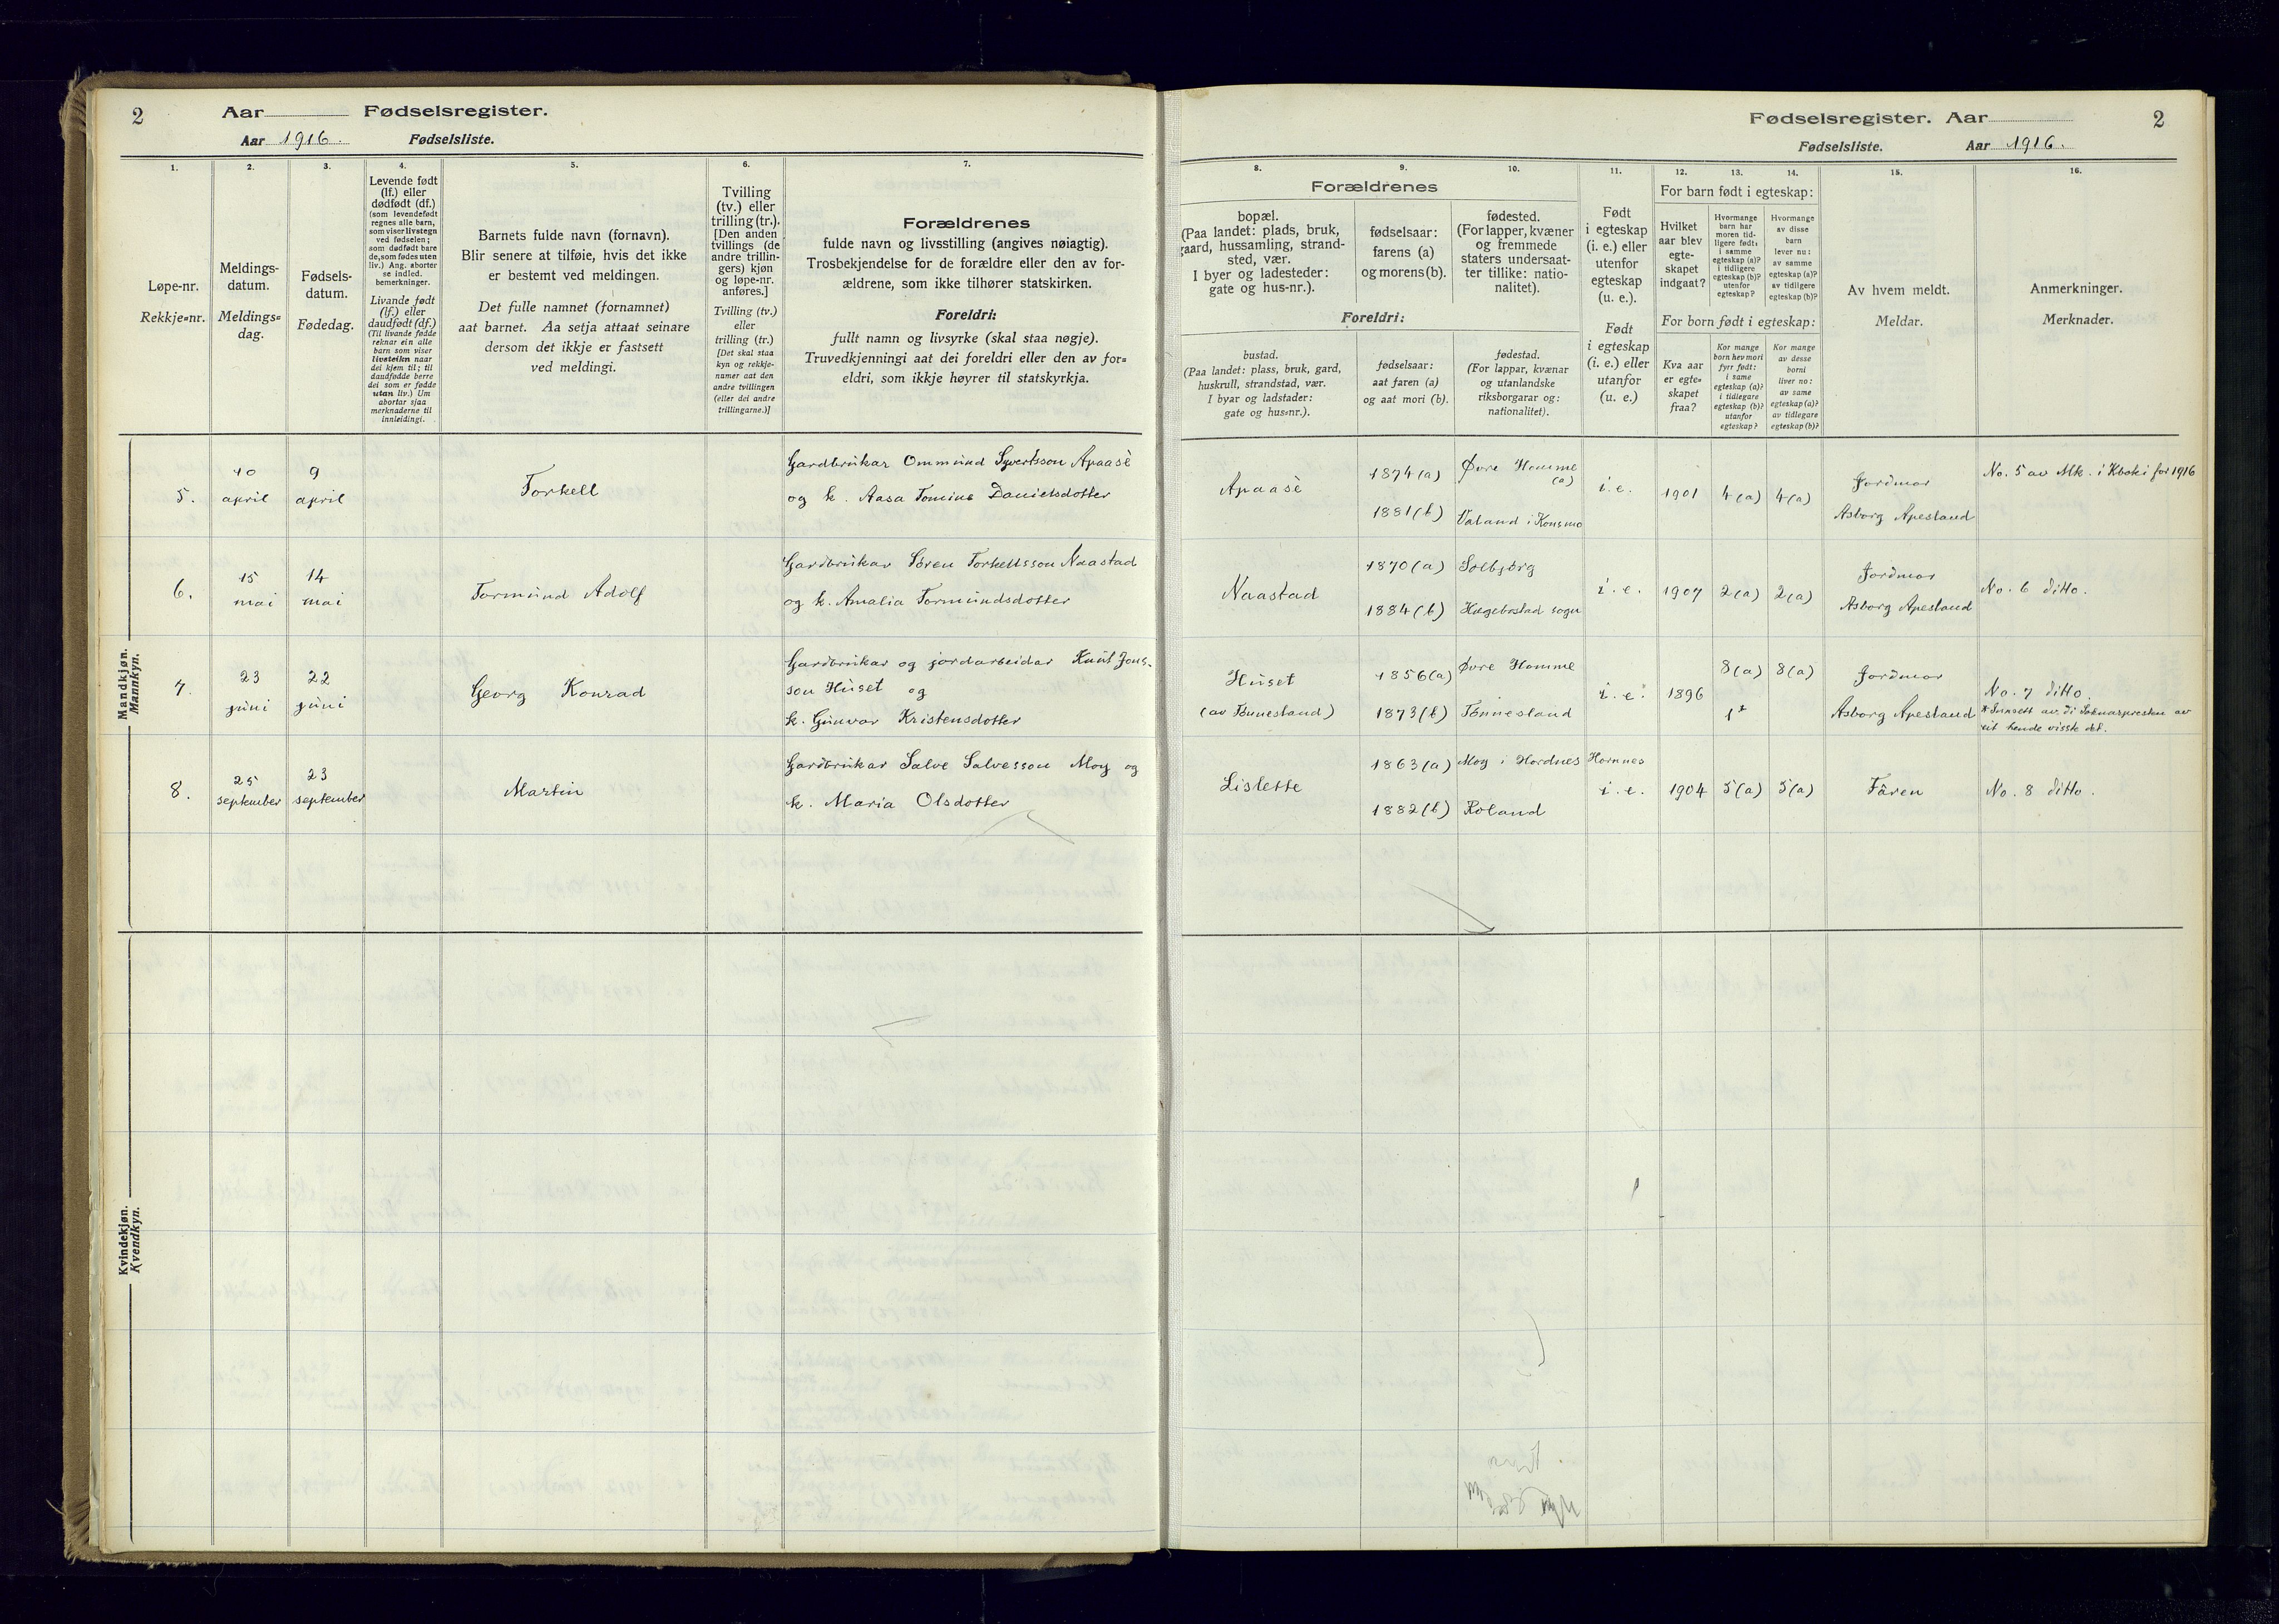 2
Aar
Fødselsregister.
Aar 1916.
Fødselsliste.
1.
Løpe-nr.
Rekkje=nr.
2.
Meldings-
datum.
Meldings=
dag.
3.
Fødsels-
datum.
Fødedag.
4.
Levende født
(lf.) eller
dødfødt (df.)
(som levendefødt
regnes alle barn,
som viser livstegn
ved fødselen;
som dødfødt bare
de, som fødes uten
liv.) Ang. aborter
se indled.
bemerkninger.
Livande født
(lf.) eller
daudfødt (df.)
(Til livande fødde
reknar ein alle
barn som viser
livsteikn naar
dei kjem til; til
daudfødde berre
dei som er fødde
utan liv.) Um
abortar sjaa
merknaderne til
innleidingi.
5.
Barnets fulde navn (fornavn).
Blir senere at tilføie, hvis det ikke
er bestemt ved meldingen.
Det fulle namnet (fornamnet)
aat barnet. Aa setja attaat seinare
dersom det ikkje er fastsett
ved meldingi.
6.
Tvilling
(tv.) eller
trilling (tr.).
[Den anden
tvillings (de
andre trillin-
gers) kjøn
og løpe-nr.
anføres.]
Tvilling (tv.)
eller
trilling (tr.)
[Det skal staa
kyn og rekkje-
numer aat den
andre tvillingen
(eller dei andre
trillingarne.)]
7.
Forældrenes
fulde navn og livsstilling (angives nøiagtig).
Trosbekjendelse for de forældre eller den av for-
ældrene, som ikke tilhører statskirken.
Foreldri:
fullt namn og livsyrke (skal staa nøgje).
Truvedkjenningi aat dei foreldri eller den av for=
eldri, som ikkje høyrer til statskyrkja.
Mandkjøn.
Mannkyn.
5.
10
april
9
april
Torkell
Gardbrukar Ommund Syvertsson Apaasè
og k. Aasa Tomine Danielsdotter
6.
15
mai
14
mai
Tormund Adolf
Gardbrukar Søren Torkellsson Naastad
og k. Amalia Tormundsdotter
7.
23
juni
22
juni
Georg Konrad
Gardbrukar og jordarbeidar Knut Jons-
son Huset og
k. Gunvor Kristensdotter
8.
25
september
23
september
Martin
Gardbrukar Salve Salvesson Moy og
k. Maria Olsdotter
Kvindekjøn.
Kvendkyn.
Fødselsregister. Aar
2
Fødselsliste.
Aar 1916.
8.
9.
10.
Forældrenes
bopæl.
(Paa landet: plads, bruk,
gaard, hussamling, strand-
sted, vær.
I byer og ladesteder:
gate og hus-nr.).
fødselsaar:
farens (a)
og morens (b).
fødested.
(For lapper, kvæner
og fremmede
staters undersaat-
ter tillike: natio-
nalitet).
Foreldri:
bustad.
(Paa landet: plass, bruk, gard,
huskrull, strandstad, vær.
I byar og ladstader:
gate og hus=nr.).
fødselsaar:
aat faren (a)
og aat mori (b).
fødestad.
(For lappar, kvænar
og utanlandske
riksborgarar og:
nationalitet).
11.
Født
i egteskap
(i. e.) eller
utenfor
egteskap
(u. e.).
Født
i egteskap
(i. e.) eller
utanfor
(u. e.)
12.
13.
14.
For barn født i egteskap:
Hvilket
aar blev
egte-
skapet
indgaat?
Hvormange
barn har
moren tid-
ligere født:
i samme
egteskap (a)?
i tidligere
egteskap (b)?
utenfor
egteskap?
Hvormange
av disse
barn
lever nu:
av samme
egteskap (a)?
av tidligere
egteskap (b)?
For born født i egteskap:
Kva aar
er egte=
skapet
fraa?
Kor mange
born hev mori
fyrr født:
i same
egteskap (a)?
i tidlegare
egteskap (b)?
utanfor
egteskap?
Kor mange
av desse
borni
liver no:
av same
egteskap (a)?
av tidlegare
egteskap (b)?
15.
Av hvem meldt.
Meldar.
16.
Anmerkninger.
Merknader.
Apaasè
1874 (a)
1881 (b)
Øvre Homme
(a)
Valand i Konsmo
i. e.
1901
4 (a)
4 (a)
Jordmor
Asborg Apesland
No. 5 av Mk. i Kboki for 1916
Naastad
1870 (a)
1884 (b)
Solbjørg
Hægebostad sogn
i. e.
1907
2 (a)
2 (a)
Jordmor
Asborg Apesland
No. 6 ditto.
Huset
(av Tønnesland)
1856 (a)
1873 (b)
Øvre Homme
Tønnesland
i. e.
1896
8 (a)
1*
8 (a)
Jordmor
Asborg Apesland
No. 7 ditto.
* Innsett av, di Soknapresten av
eit hende visste det.
Lislette
1863 (a)
1882 (b)
Moy i Hordnes Hornnes
Roland
i. e.
1904
5 (a)
5 (a)
Fâren
No. 8 ditto.